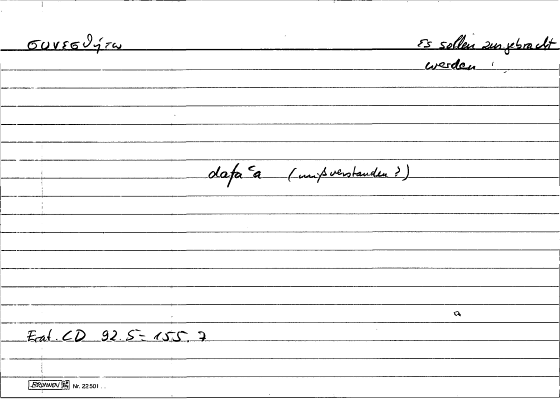 συνεσθήτω Es sollen zusgebracht
werden :
dafaᶜa (mißverstanden?)
a
Erat. CD 92.5 = 155.7
BRUNNEN Nr. 22 501